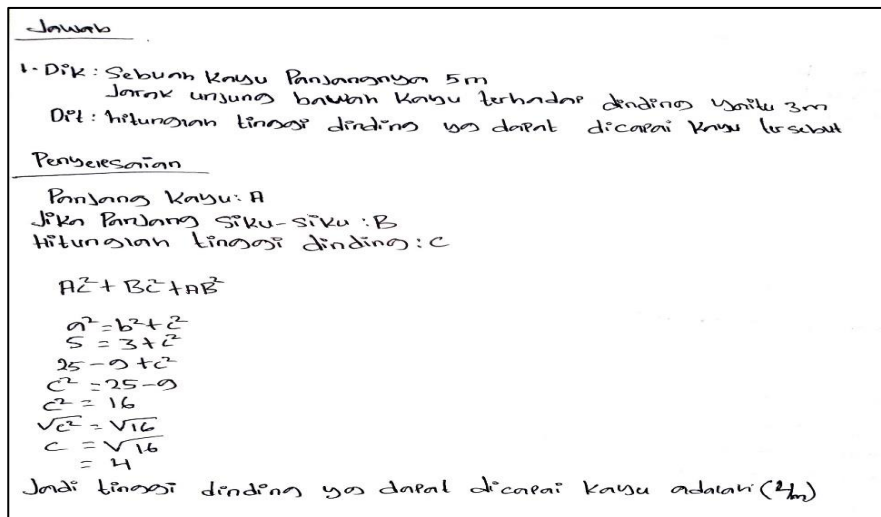 Jawab
1. Dik : Sebuah Kayu Panjangnya 5m
Jarak unjung bawah Kayu terhadap dinding yaitu 3m
Dit : hitunglah tinggi dinding yg dapat dicapai Kayu tersebut
Penyelesaian
Panjang Kayu : A
Jika Panjang Siku-Siku : B
Hitunglah tinggi dinding : C
AC² + BC² + AB²
a² = b² + c²
5 = 3 + c²
25 - 9 + c²
c² = 25 - 9
c² = 16
√c² = √16
c = √16
= 4
Jadi tinggi dinding yg dapat dicapai Kayu adalah (4m)